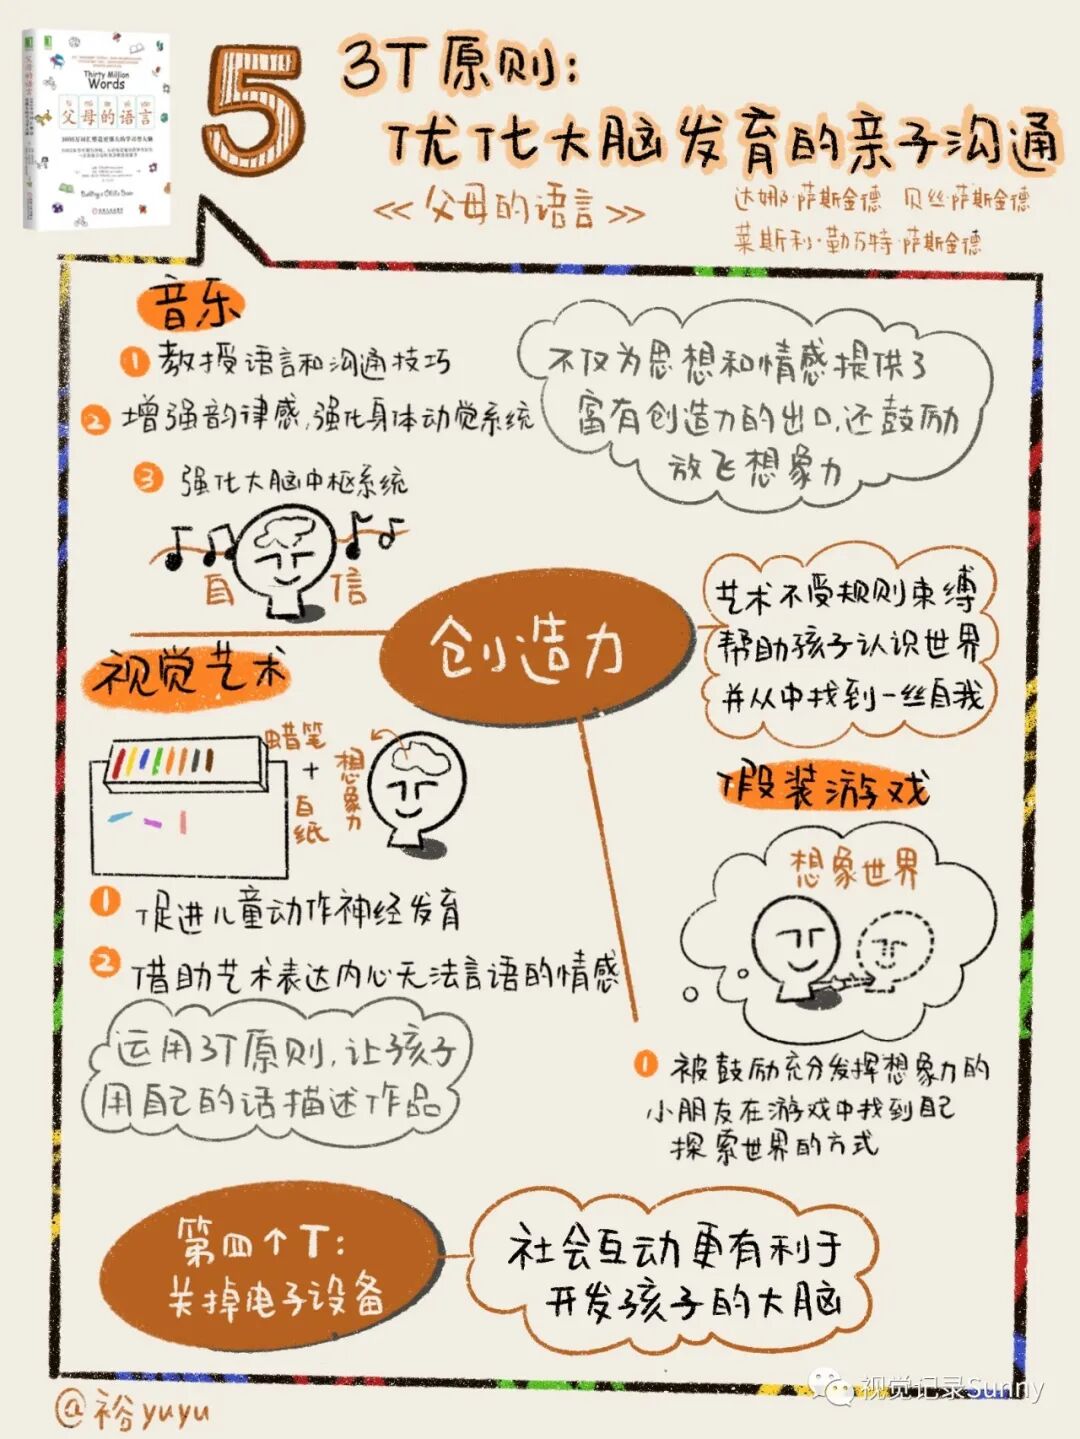 Thirty Million
Words
父母的语言
Building a Child's Brain
5
3T原则:
优化大脑发育的亲子沟通
《父母的语言》
达娜·萨斯金德 贝丝·萨斯金德
莱斯利·勒万特·萨斯金德
音乐
1 教授语言和沟通技巧
2 增强韵律感,强化身体动觉系统
3 强化大脑中枢系统
自 信
不仅为思想和情感提供了
富有创造力的出口,还鼓励
放飞想象力
创造力
艺术不受规则束缚
帮助孩子认识世界
并从中找到一丝自我
视觉艺术
蜡笔
+
白纸
想象力
1 促进儿童动作神经发育
2 借助艺术表达内心无法言语的情感
运用3T原则,让孩子
用自己的话描述作品
假装游戏
想象世界
1 被鼓励充分发挥想象力的
小朋友在游戏中找到自己
探索世界的方式
第四个T:
关掉电子设备
社会互动更有利于
开发孩子的大脑
@裕yuyu
视觉记录Sunny